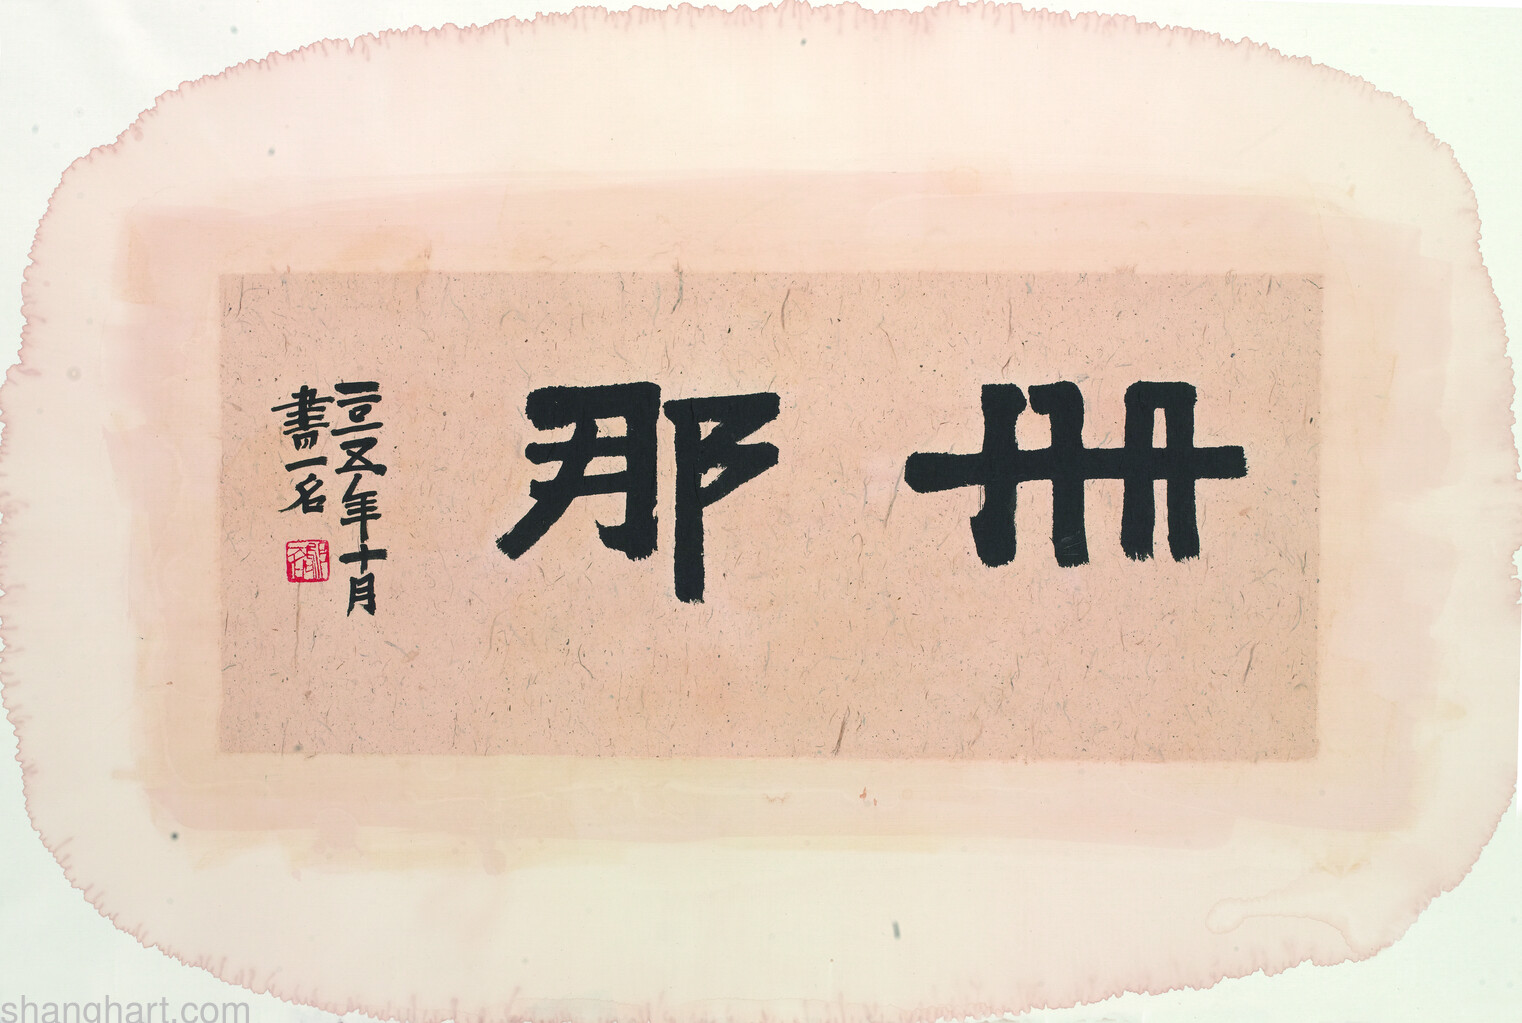 册那
二〇一五年十月
書一名
shanghart.com